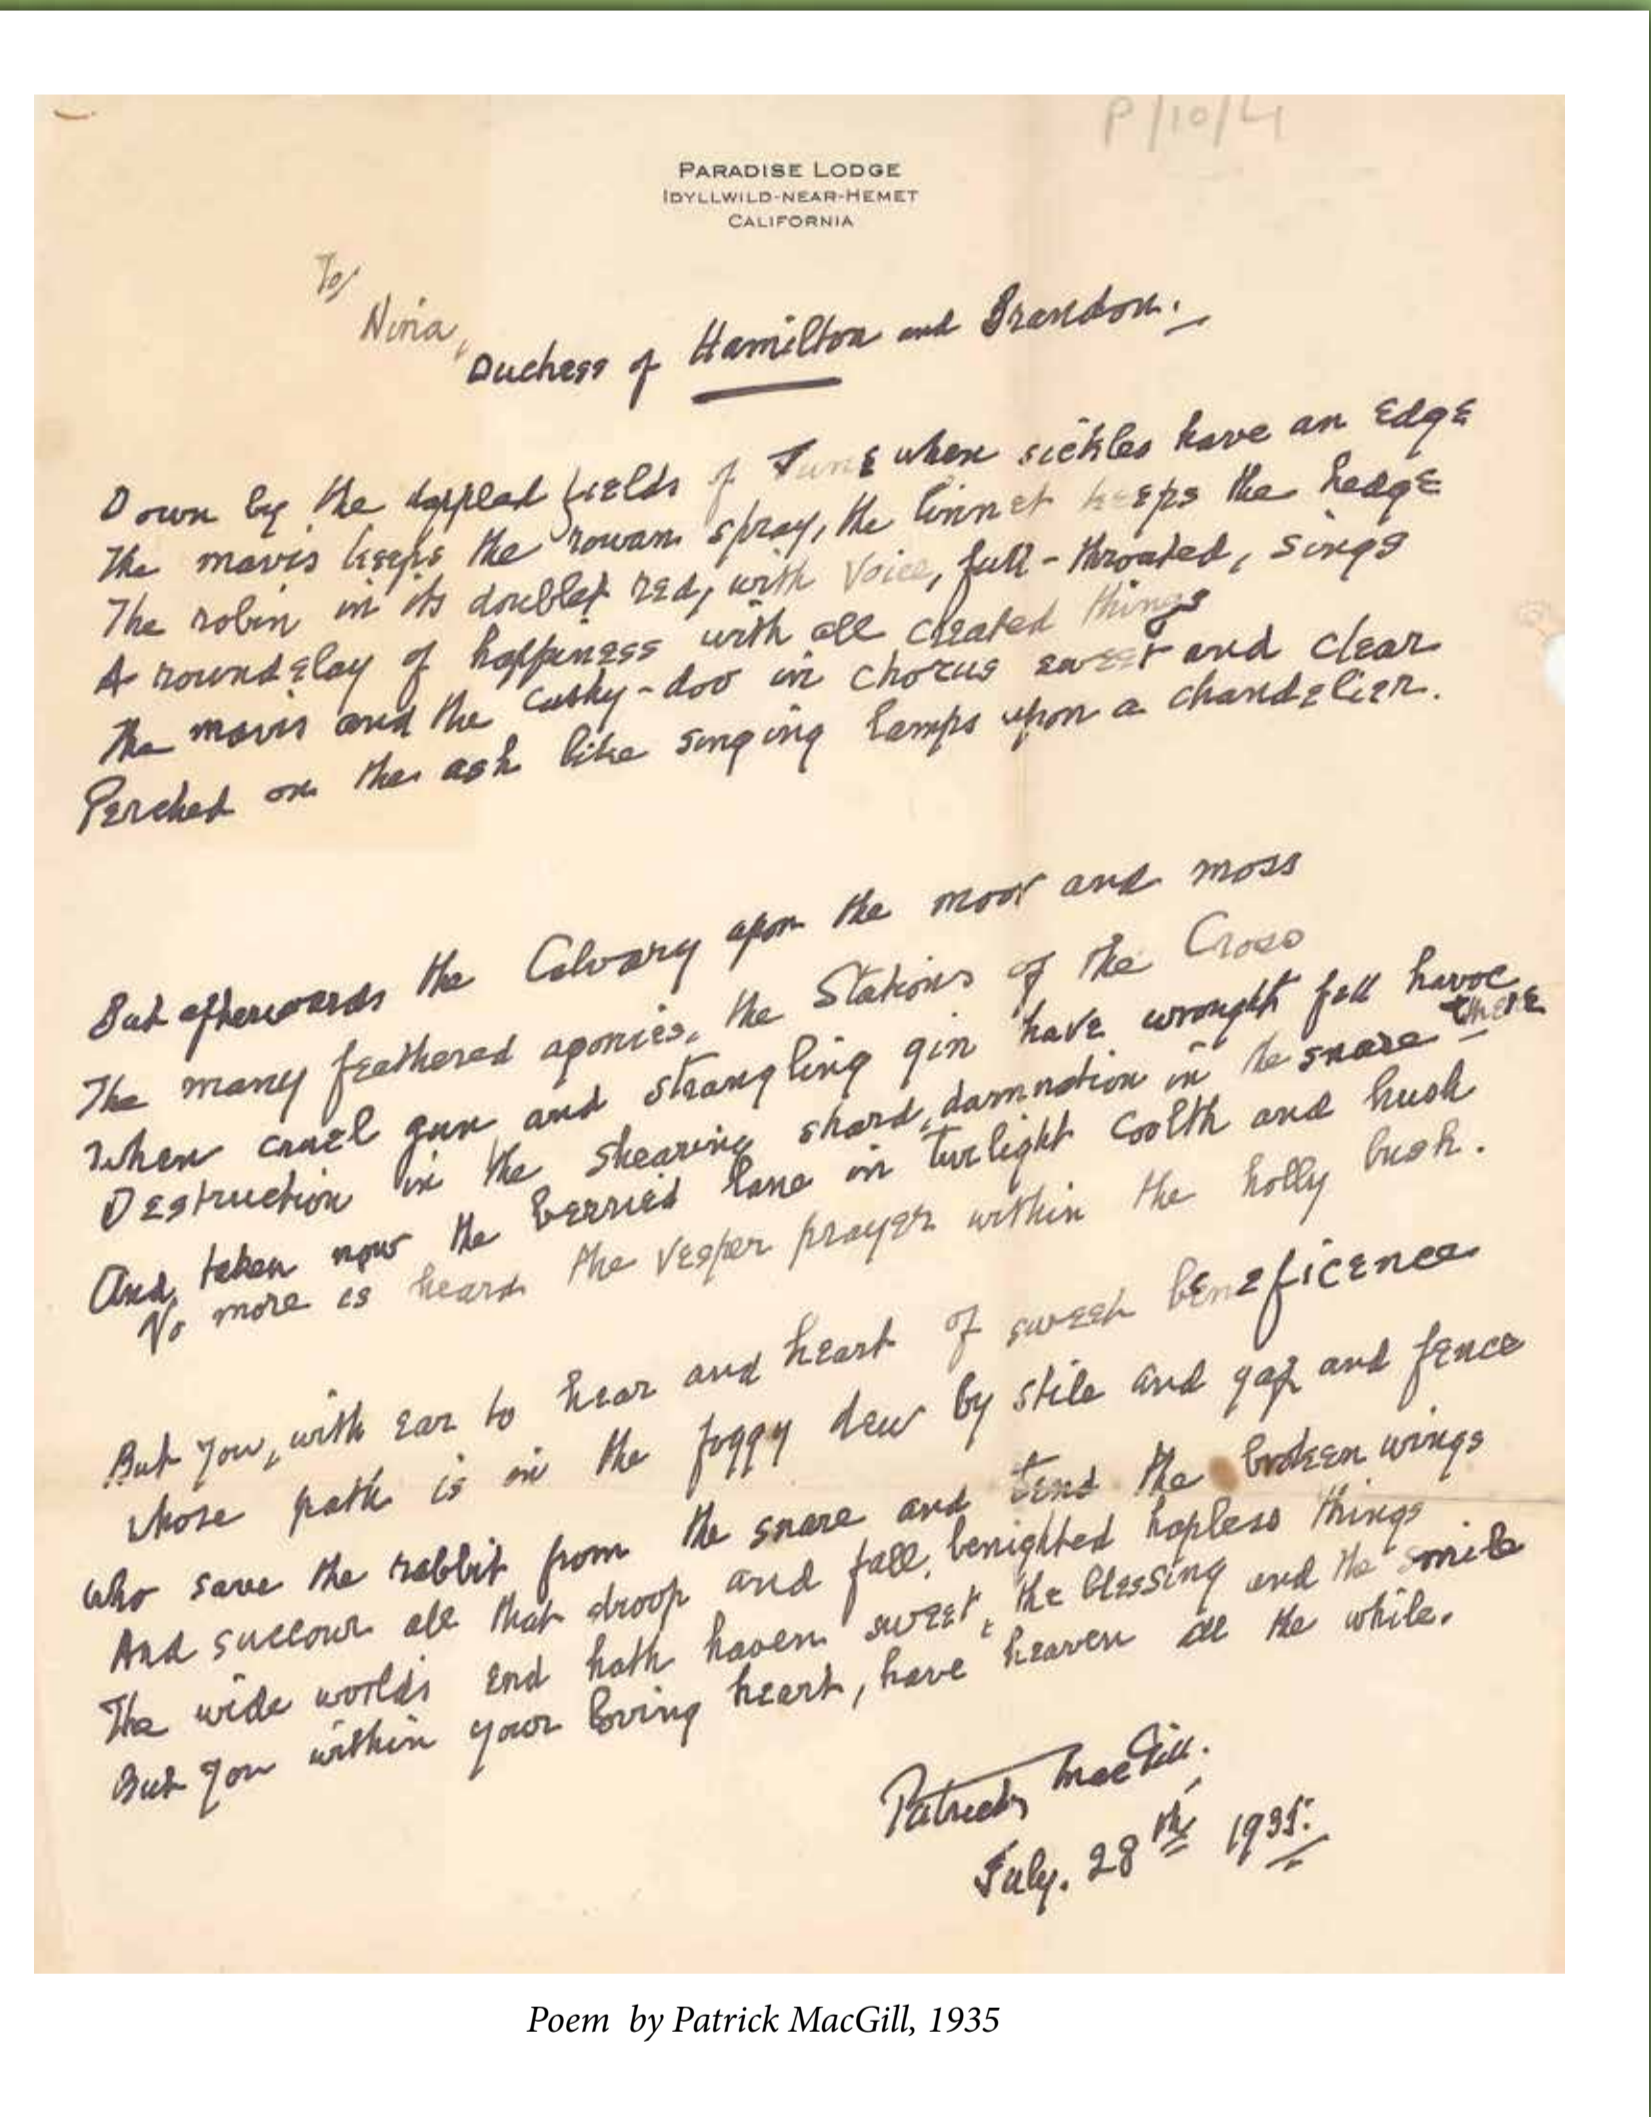 P/10/4
PARADISE LODGE
IDYLLWILD-NEAR-HEMET
CALIFORNIA
To/
Nina,
Duchess of Hamilton and Brandon.
Down by the dappled fields of June when sickles have an edge
The mavis keeps the rowan spray, the linnet keeps the hedge
The robin in its doublet red, with voice, full-throated, sings
A roundelay of happiness with all created things
The mavis and the cushy-doo in chorus sweet and clear
Perched on the ash like singing lamps upon a chandelier.
But afterwards the Calvary upon the moor and moss
The many feathered agonies, the Stations of the Cross
When cruel gun and strangling gin have wrought fell havoc there
Destruction in the shearing shard, damnation in the snare –
And taken now the berried lane in twilight coolth and hush
No more is heard the vesper prayer within the holly bush.
But you, with ear to hear and heart of sweet beneficence
whose path is in the foggy dew by stile and gap and fence
Who save the rabbit from the snare and tend the broken wings
And succour all that droop and fall, benighted hapless things
The wide worlds end hath haven sweet, the blessing and the smile
But you within your loving heart, have heaven all the while.
Patrick MacGill.
July. 28th 1935.
Poem by Patrick MacGill, 1935